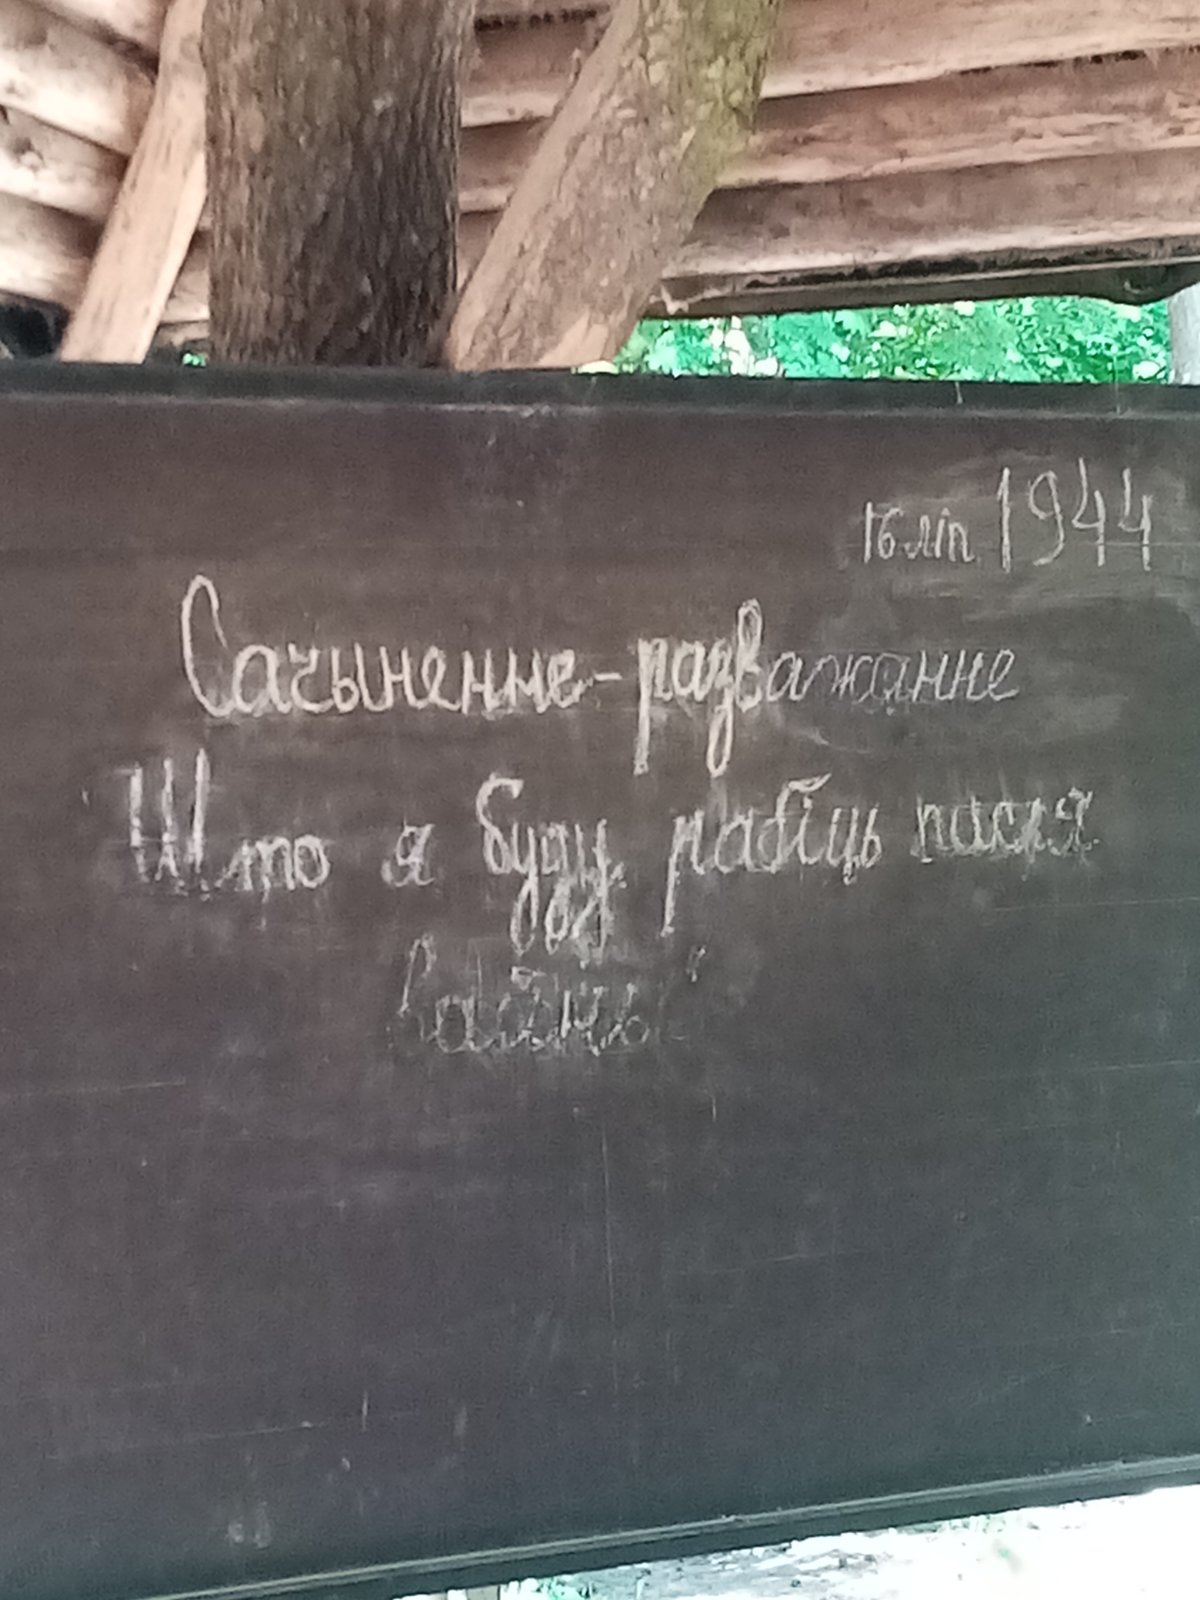 16 ліп. 1944
Сачыненне-разважанне
Што я буду рабіць пасля
вайны"